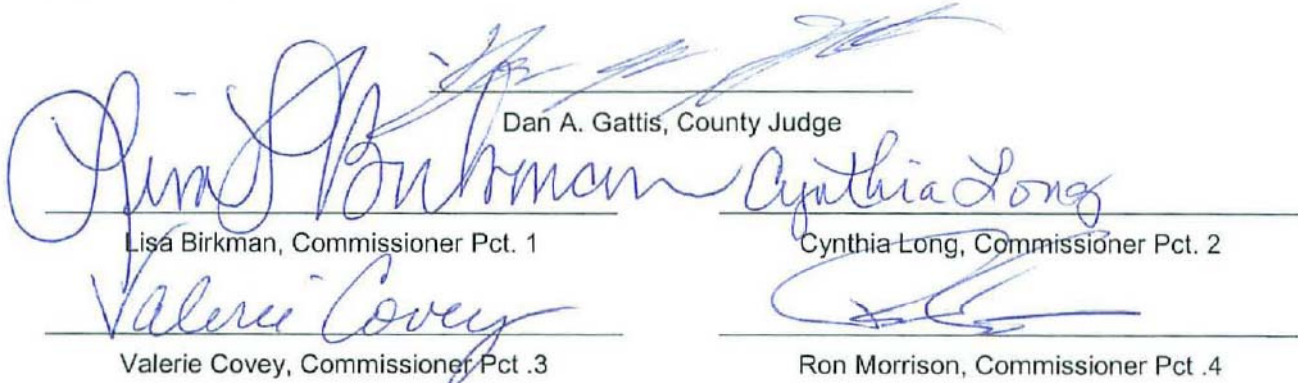 Dan A. Gattis, County Judge
Lisa Birkman Cynthia Long
Lisa Birkman, Commissioner Pct. 1 Cynthia Long, Commissioner Pct. 2
Valerie Covey
Valerie Covey, Commissioner Pct .3 Ron Morrison, Commissioner Pct .4